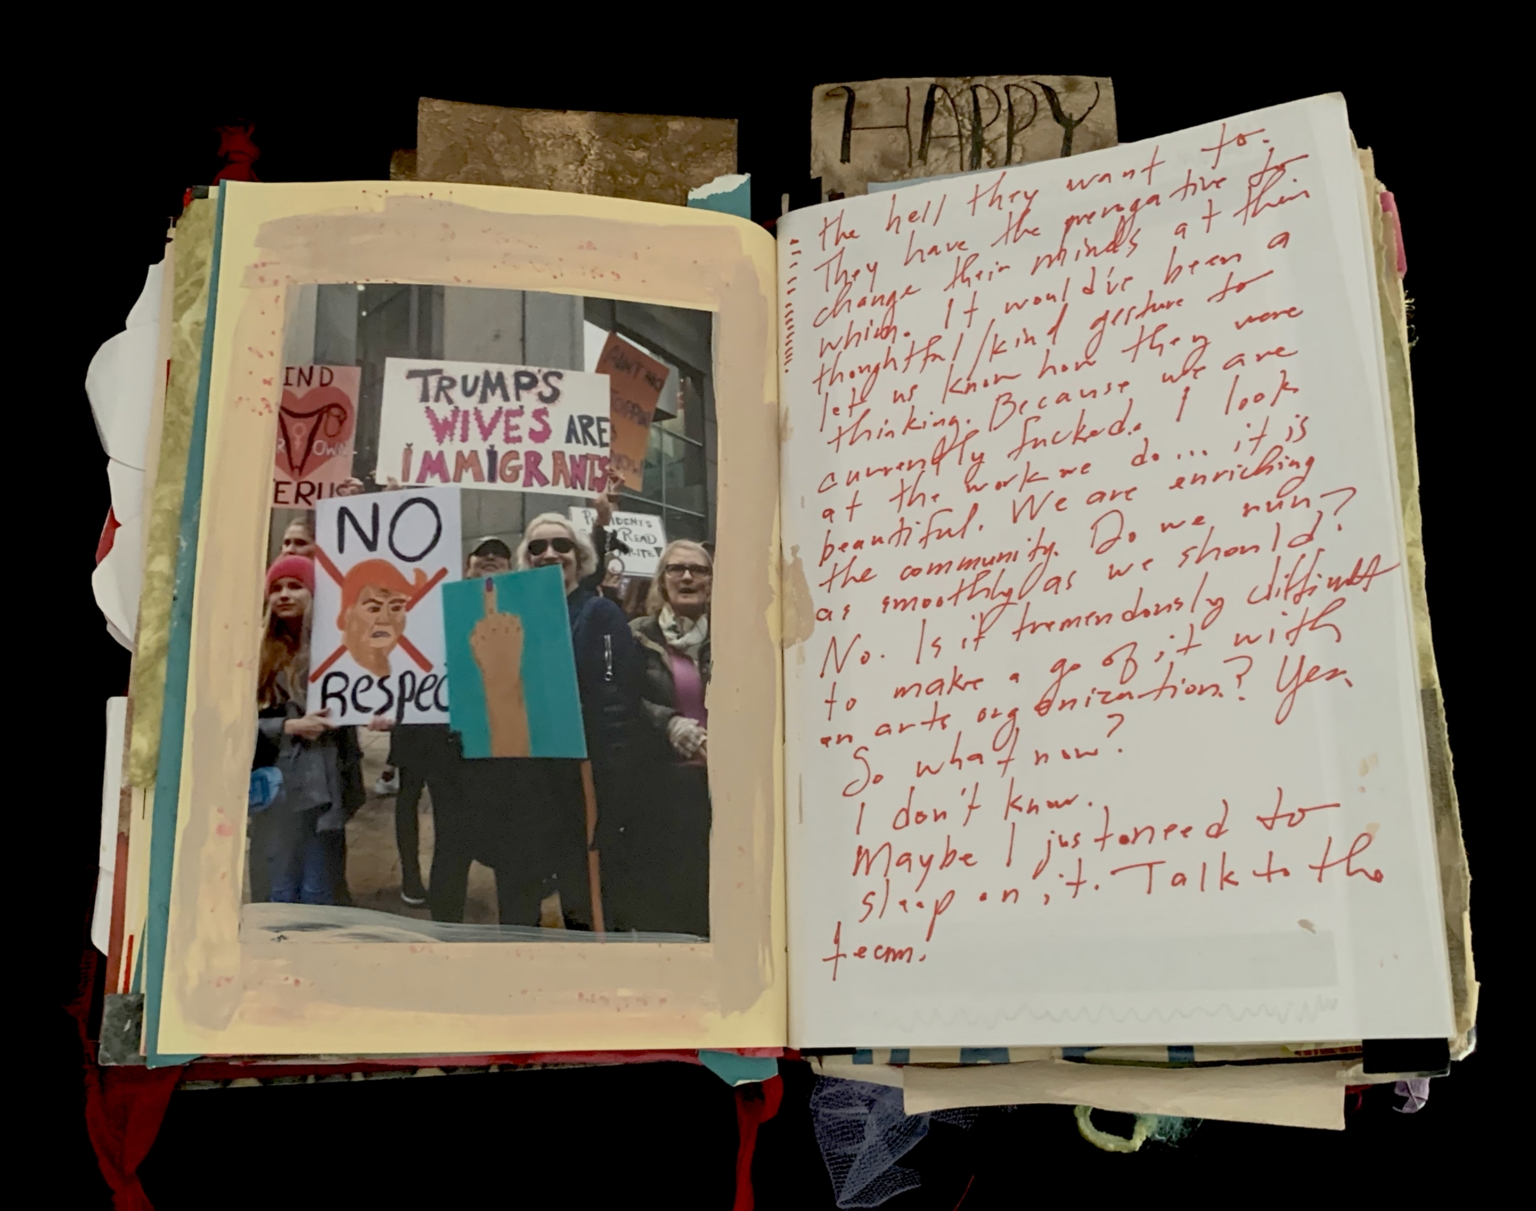 HAPPY
IND
R OWN
TERUS
TRUMP'S
WIVES ARE
IMMIGRANTS
AIN'T NO
NO
RESPEC
READ
the hell they want to.
They have the prerogative to
change their minds at their
whim. It would've been a
thoughtful/kind gesture to
let us know how they were
thinking. Because we are
currently fucked. I look
at the work we do... it is
beautiful. We are enriching
the community. Do we run
as smoothly as we should?
No. Is it tremendously difficult
to make a go of it with
an arts organization? Yes.
So what now?
I don't know.
Maybe I just need to
sleep on it. Talk to the
team.